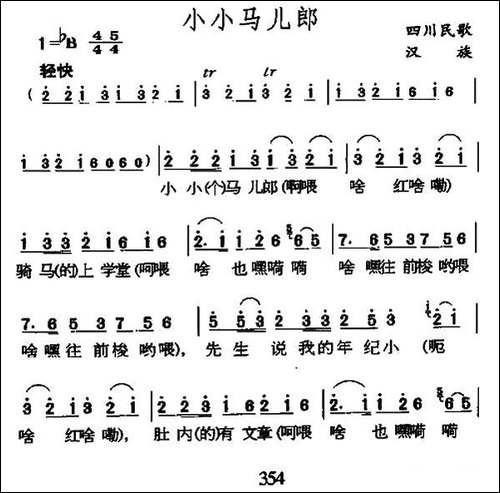 小小马儿郎
1=♭B 4/4 5/4
四川民歌
汉 族
轻快
tr tr
( 2 2 1 3 1 3 2 1 | 3 2 1 3 2 1 | 1 3 1 3 2 1 6 1 6
1 3 2 1 6 0 6 0 ) | 2 2 2 1 3 1 3 2 1 | 3 2 1 3 2 1 |
小 小(个)马 儿郎 (啊喂 啥 红啥嘞)
1 3 3 2 1 6 1 6 | 2. 1 1 2 6 5 6 5 | 7. 6 5 3 7 5 6 |
骑马(的)上 学堂(呵喂 啥 也嘿嗬 嗬 啥 嘿往 前梭 哟喂
7. 6 5 3 7 5 6 | 5 5 3 2 3 2 1 2 2 | 5 3 3 2 1 2 1
啥嘿往 前梭 哟喂), 先生 说 我的年 纪小 (呃
3 2 1 3 2 1 | 2 2 3 1 6 2 1 6 | 2. 1 1 2 6 5 6 5 |
啥 红啥 嘞), 肚 内(的)有 文章(呵喂 啥 也 嘿嗬 嗬
354